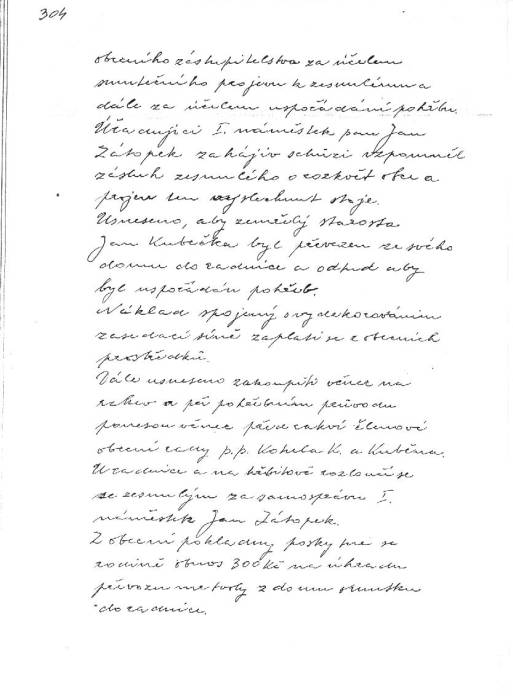 304
obecního zastupitelstva za účelem
smutečního projevu k zesnulému a
dále za účelem uspořádání pohřbu.
Úřadující I. náměstek pan Jan
Zátopek zahájiv schůzi vzpomněl
zásluh zesnulého o rozkvět obce a
projev ten vyslechnut stoje.
Usneseno, aby zemřelý starosta
Jan Kubečka byl převezen ze svého
domu do radnice a odtud aby
byl uspořádán pohřeb.
Náklad spojený s vydekorováním
zasedací síně zaplatí se z obecních
prostředků.
Dále usneseno zakoupiti věnec na
rakev a při pohřebním průvodu
ponesou věnec před rakví členové
obecní rady p.p. Kohela K. a Kuběna.
U radnice a na hřbitově rozloučí se
se zesnulým za samosprávu I.
náměstek Jan Zátopek.
Z obecní pokladny poskytne se
rodině obnos 300 Kč na úhradu
převozu mrtvoly z domu smutku
do radnice.